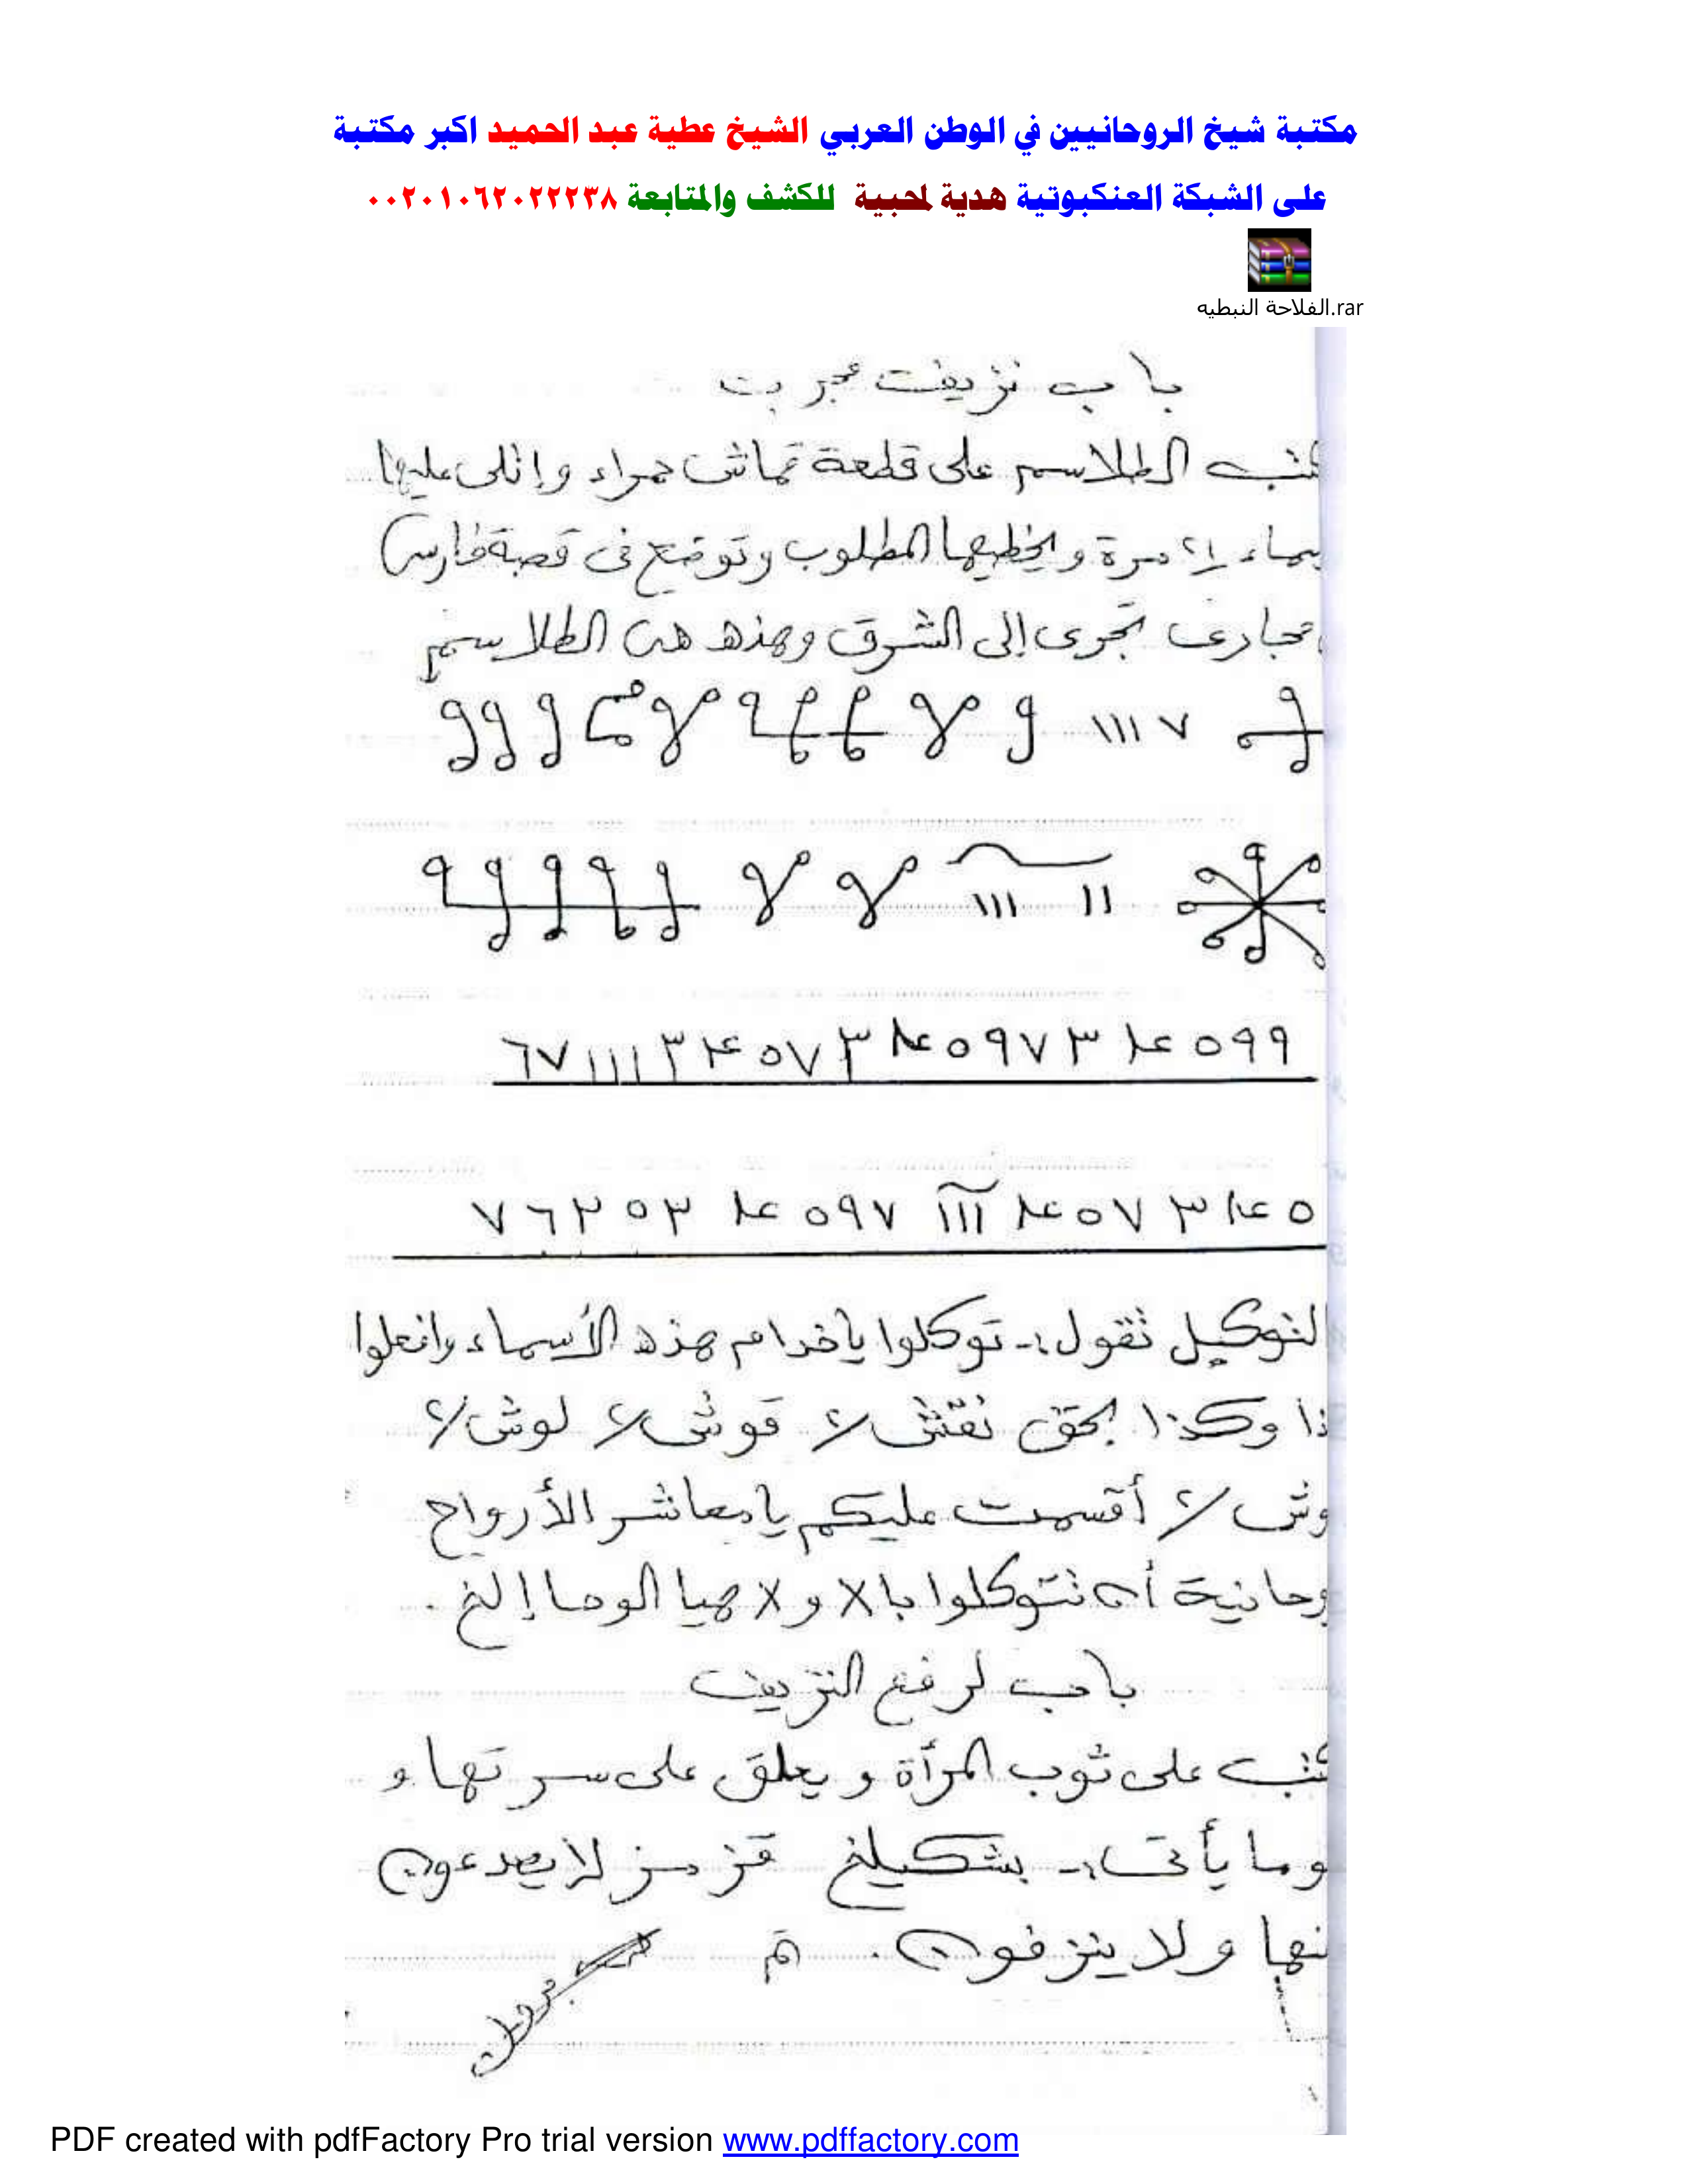 مكتبة شيخ الروحانيين في الوطن العربي الشيخ عطية عبد الحميد اكبر مكتبة
على الشبكة العنكبوتية هدية لمحبيه للكشف والمتابعة ٠٠٢٠١٠٦٢٠٢٢٢٣٨
الفلاحة النبطيه.rar
باب نزيف مجرب
كتب الطلاسم على قطعة قماش حمراء واتلى عليها
سماء ٢١ مرة ويخطيها المطلوب وتوضع فى قصبة فارسى
مجارى تجرى إلى الشرق وهذه هى الطلاسم
٧ ١١١
١١ ١١١
٩٩٥ ٣٧٩٥ ٣ ٧٥ ٣ ١١١ ٧٦
٥ ٣ ٧٥ ١١١ ٧٩٥ ٣٥٣ ٦٧
التوكيل تقول :- توكلوا ياخدام هذه الأسماء وافعلوا
ذا وكذا بحق نقش ٢ قوش ٢ لوش ٢
وش ٢ أقسمت عليكم يا معاشر الأرواح
وحانية أن تتوكلوا با لا و لا هيا الوحا إلخ .
باب لرفع النزيف
كتب على ثوب المرأة و يعلق على سرتها و
وما يأتى :- بشكيلخ قز مز لا يصدعون
نها ولا ينزفون . تم
PDF created with pdfFactory Pro trial version www.pdffactory.com